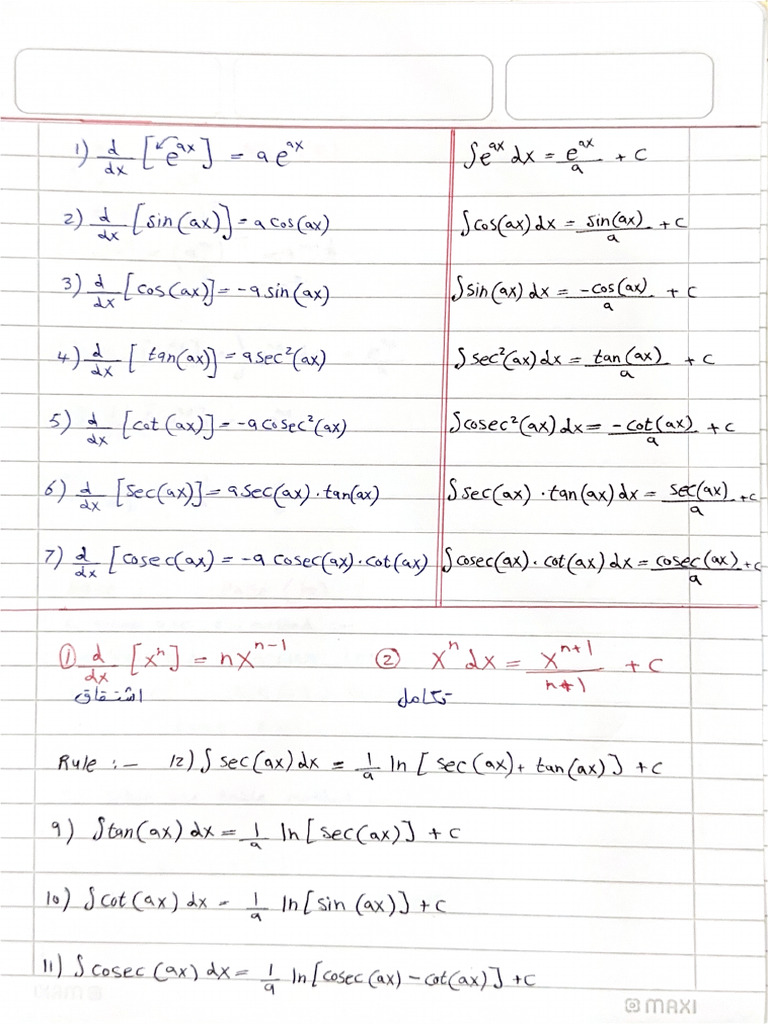 1) d/dx [e^ax] = a e^ax    ∫e^ax dx = e^ax/a + c
2) d/dx [sin(ax)] = a cos(ax)    ∫cos(ax) dx = sin(ax)/a + c
3) d/dx [cos(ax)] = -a sin(ax)    ∫sin(ax) dx = -cos(ax)/a + c
4) d/dx [tan(ax)] = a sec²(ax)    ∫sec²(ax) dx = tan(ax)/a + c
5) d/dx [cot(ax)] = -a cosec²(ax)    ∫cosec²(ax) dx = -cot(ax)/a + c
6) d/dx [sec(ax)] = a sec(ax)·tan(ax)    ∫sec(ax)·tan(ax) dx = sec(ax)/a + c
7) d/dx [cosec(ax) = -a cosec(ax)·cot(ax)    ∫cosec(ax)·cot(ax) dx = cosec(ax)/a + c
① d/dx [x^n] = nx^n-1    ② x^n dx = x^n+1/n+1 + c
اشتقاق    تكامل
Rule :- 12) ∫sec(ax) dx = 1/a ln[sec(ax) + tan(ax)] + c
9) ∫tan(ax) dx = 1/a ln[sec(ax)] + c
10) ∫cot(ax) dx - 1/a ln[sin(ax)] + c
11) ∫cosec(ax) dx = 1/a ln[cosec(ax) - cot(ax)] + c
MAXI